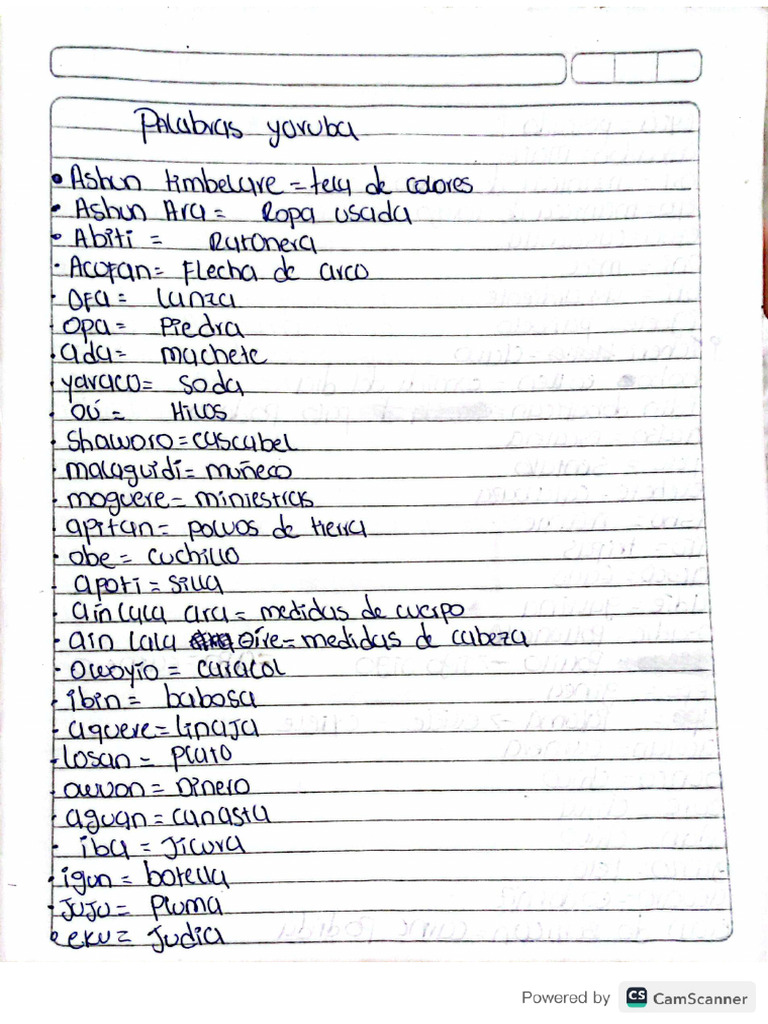 Palabras yoruba
• Ashun timbelare = tela de colores
• Ashun Ara = Ropa usada
• Abiti = Ratonera
- Acofan = Flecha de arco
- OFa = Lanza
- Opa = Piedra
- ada = machete
yaraco = soda
- oú = Hilos
shaworo = cascabel
malaguidi = muñeco
- moguere = miniestras
apitan = polvos de tierra
- obe = cuchillo
- apoti = silla
- ain lala ara = medidas de cuerpo
- ain lala oire = medidas de cabeza
- owoyio = caracol
- ibin = babosa
- aquere = tinaja
- Losan = plato
- owon = Dinero
- aguan = canasta
- iba = Jicara
- igun = botella
- JuJu = Pluma
• eku = Judia
Powered by CS CamScanner